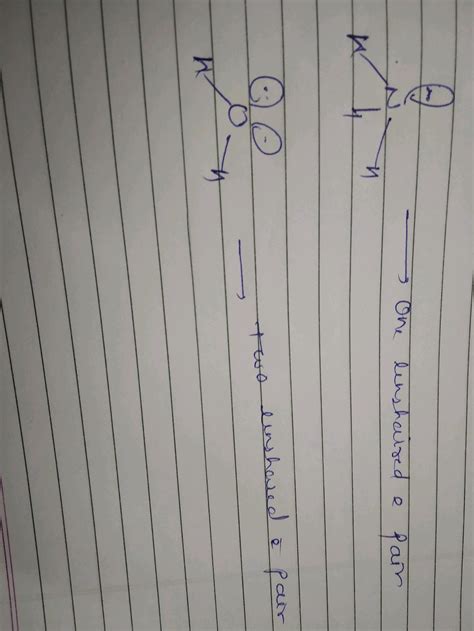 H N H
H
→ One unshaired e pair
H O H
→ two unshared e pair